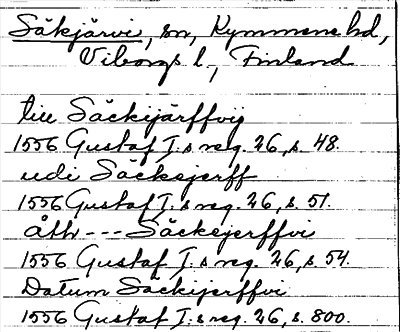 Säkjärvi, sn, Kymmene hd,
Viborgs l., Finland
till Säckijärffvij
1556 Gustaf I:s reg. 26, s. 48.
udi Säckejerff
1556 Gustaf I:s reg. 26, s. 51.
åth --- Säckejerffvi
1556 Gustaf I:s reg. 26, s. 54.
Datum Säckijerffvi
1556 Gustaf I:s reg. 26, s. 800.